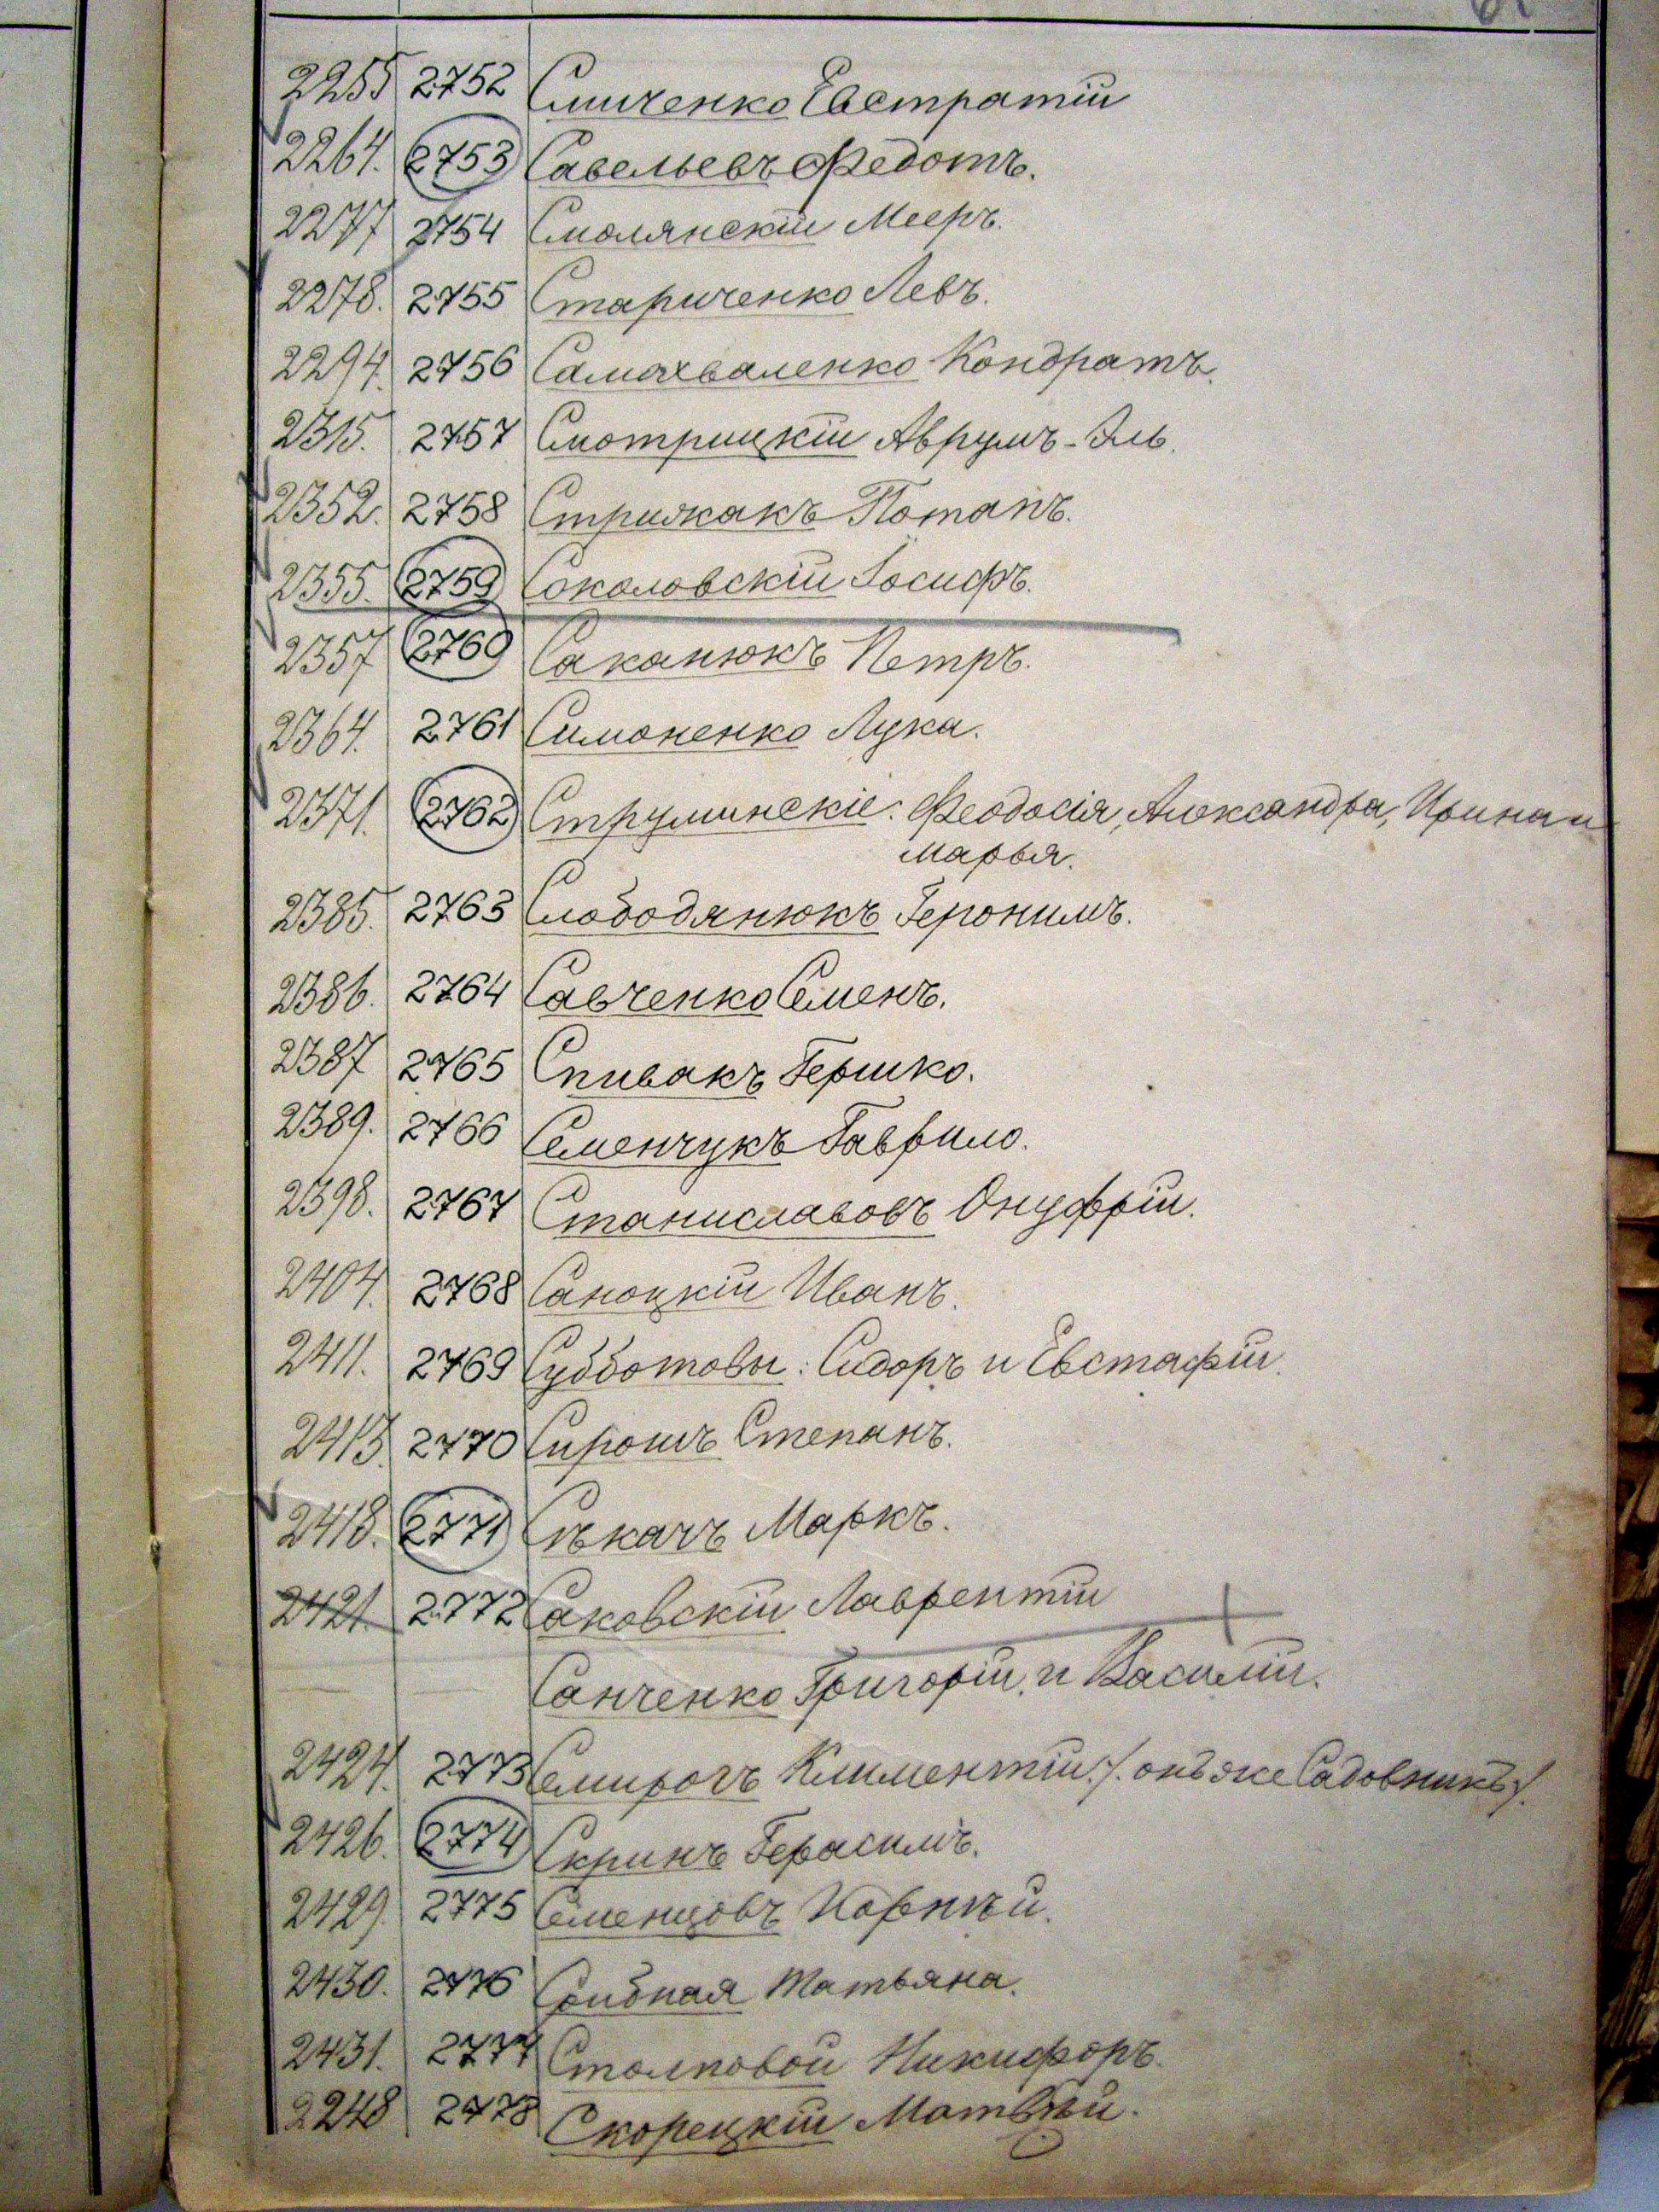 2255 2752 Синченко Евстратій
2264. 2753 Савельевъ Федотъ.
2277 2754 Смолянскій Мееръ.
2278. 2755 Стариченко Левъ.
2294. 2756 Самохваленко Кондратъ.
2315. 2757 Смотрицкій Аврумъ-Эль.
2352. 2758 Стрижакъ Потапъ.
2355. 2759 Соколовскій Іосифъ.
2357 2760 Саканюкъ Петръ.
2364. 2761 Симоненко Лука.
2371. 2762 Струминскіе: Феодосія, Александра, Ирина и
Марья.
2385. 2763 Слободянюкъ Іеронимъ.
2386. 2764 Савченко Семенъ.
2387 2765 Спивакъ Гершко.
2389. 2766 Семенчукъ Гаврило.
2398. 2767 Станиславовъ Онуфрій.
2404. 2768 Саноцкій Иванъ.
2411. 2769 Субботовы: Сидоръ и Евстафій.
2413. 2770 Сирошъ Степанъ.
2418. 2771 Сѣкачъ Маркъ.
2421. 2772 Саковскій Лаврентій
Санченко Григорій и Василій.
2424. 2773 Семирогъ Климентій /. онъ же Садовникъ /.
2426. 2774 Скринъ Герасимъ.
2429. 2775 Семенцовъ Корнѣй.
2430. 2776 Срибная Татьяна.
2431. 2777 Столповой Никифоръ.
2248 2778 Скорецкій Матвѣй.